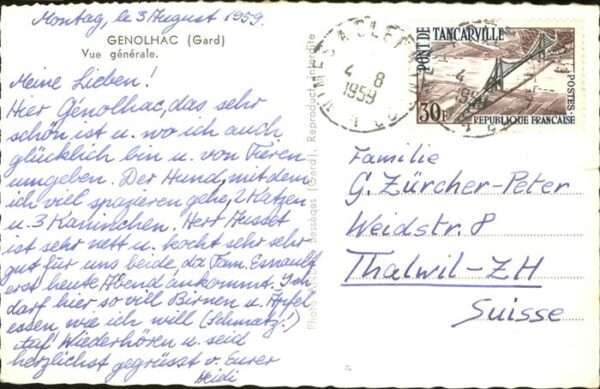 Montag, le 3 August 1959.
GENOLHAC (Gard)
Vue générale.
Meine Lieben!
Hier Génolhac, das sehr
schön ist u. wo ich auch
glücklich bin u. von Tieren
umgeben. Der Hund, mit dem
ich viel spazieren gehe, 2 Katzen
u. 3 Kaninchen. Herr Husset
ist sehr nett u. kocht sehr sehr
gut für uns beide, da Fam. Esnault
erst heute Abend ankommt. Ich
darf hier so viel Birnen u. Äpfel
essen, wie ich will (Schmatz!)
Auf Wiederhören u. seid
herzlichst gegrüsst v. Eurer
Heidi
Bessèges (Gard). Reproduct. interdite
4 8
1959
PONT DE TANCARVILLE
30F
POSTES
REPUBLIQUE FRANÇAISE
Familie
G. Zürcher-Peter
Weidstr. 8
Thalwil-ZH
Suisse